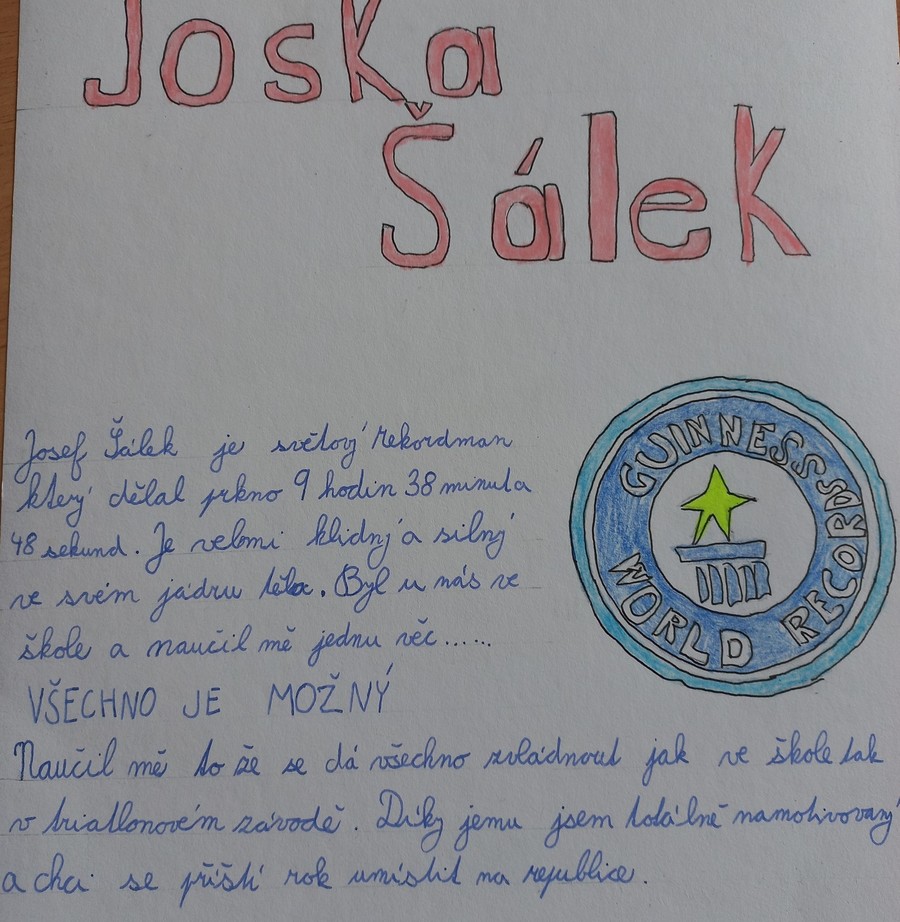 Joska
Šálek
Josef Šálek je světový rekordman
který dělal prkno 9 hodin 38 minuta
48 sekund. Je velmi klidný a silný
ve svém jádru těla. Byl u nás ve
škole a naučil mě jednu věc......
VŠECHNO JE MOŽNÝ
Naučil mě to že se dá všechno zvládnout jak ve škole tak
v triatlonovém závodě. Díky jemu jsem totálně namotivovaný
a chci se příští rok umístit na republice.
GUINNESS
WORLD RECORDS